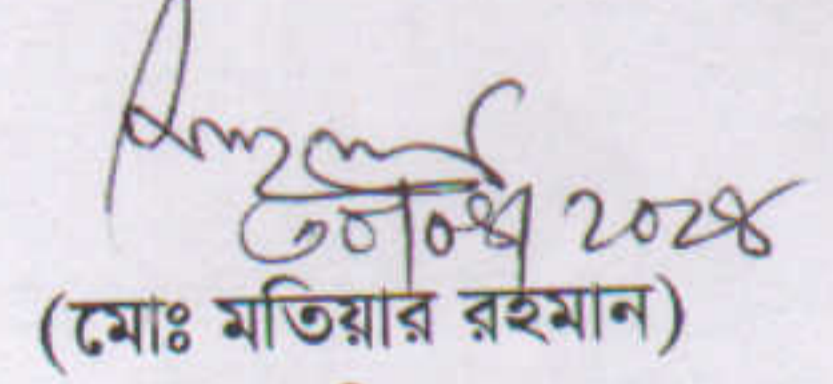 ৩০/০৪/২০২৪
(মোঃ মতিয়ার রহমান)